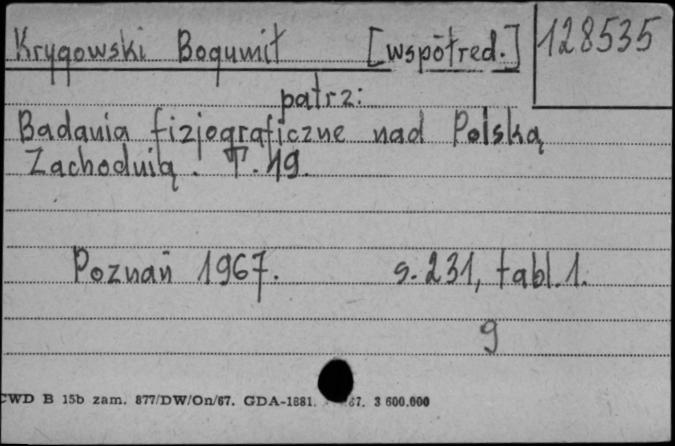 Krygowski Bogumił [współred.] 128535
patrz:
Badania fizjograficzne nad Polską
Zachodnią. T. 19.
Poznań 1967. s. 231, tabl. 1.
9
CWD B 15b zam. 877/DW/On/67. GDA-1881. 67. 3 600.000